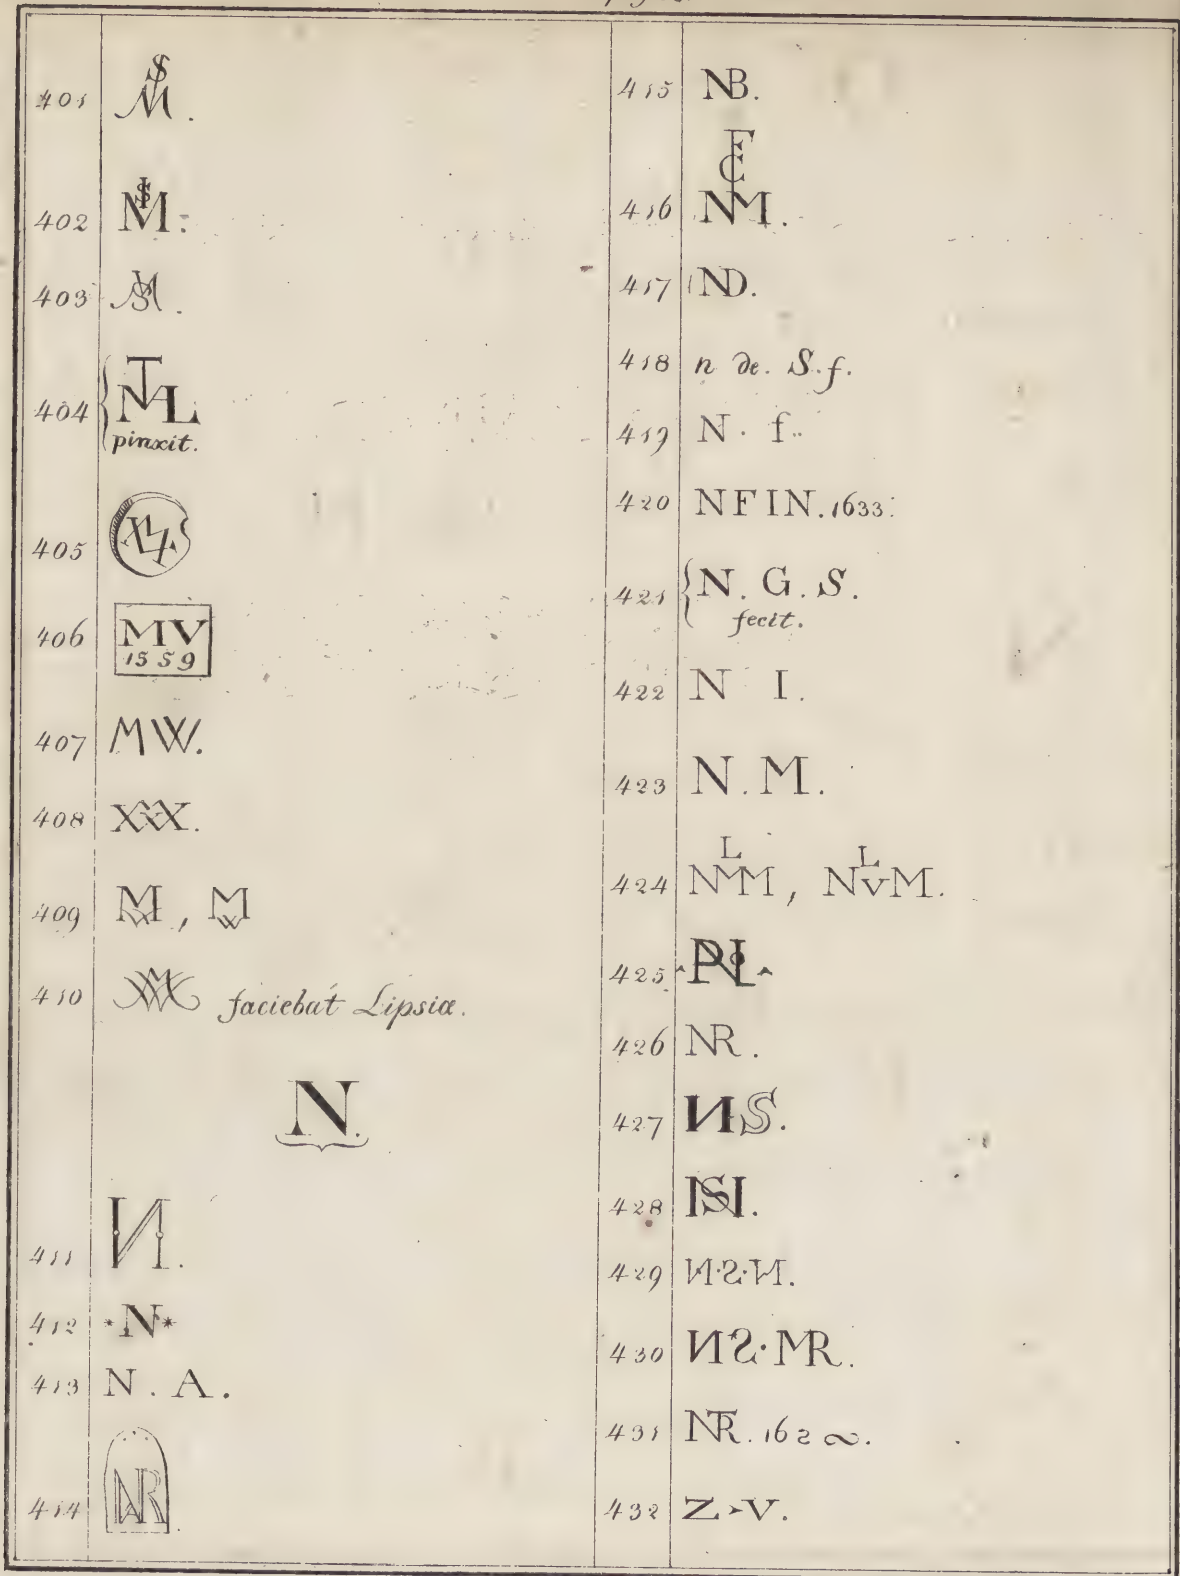 401 SM.
402 NISM.
403 MS.
404 NTAL
pinxit.
405
406 MV
1559
407 MW.
408 XXX.
409 MW, MW
410 MW faciebat Lipsiæ.
N.
411 N.
412 *N*
413 N. A.
414 NAR
415 NB.
416 FC
NM.
417 ND.
418 n de. S. f.
419 N. f..
420 NFIN. 1633.
421 N. G. S.
fecit.
422 N I.
423 N. M.
424 L L
NVM, NVM.
425 PNL
426 NR.
427 NS.
428 NSI.
429 N.S.N.
430 NS.MR.
431 NTR. 162∾.
432 Z>V.